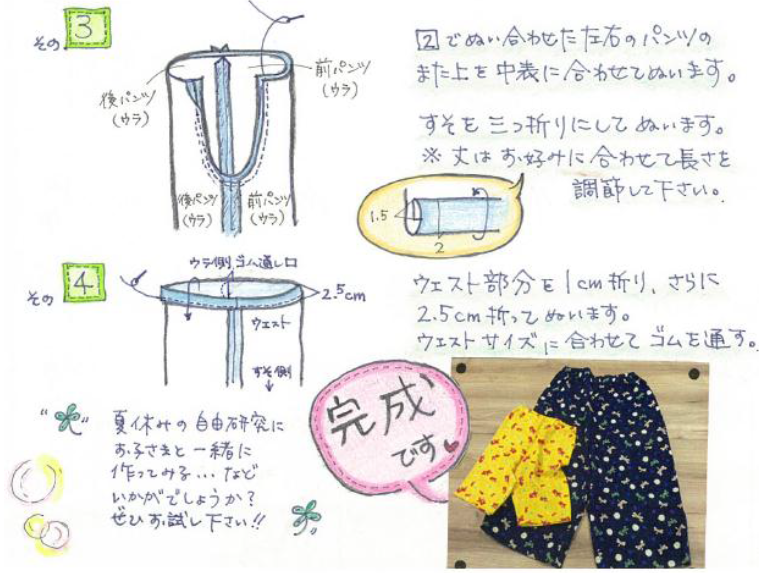 その 3
後パンツ
(ウラ)
前パンツ
(ウラ)
後パンツ
(ウラ)
前パンツ
(ウラ)
2 でぬい合わせた左右のパンツの
また上を中表に合わせてぬいます。
すそを三つ折りにしてぬいます。
※ 丈はお好みに合わせて長さを
調節して下さい。
1.5
2
その 4
ウラ側 ゴム通し口
2.5cm
ウエスト
すそ側
ウエスト部分を1cm折り、さらに
2.5cm折ってぬいます。
ウエストサイズに合わせてゴムを通す。
夏休みの自由研究に
お子さまと一緒に
作ってみる…など
いかがでしょうか?
ぜひお試し下さい!!
完成
です